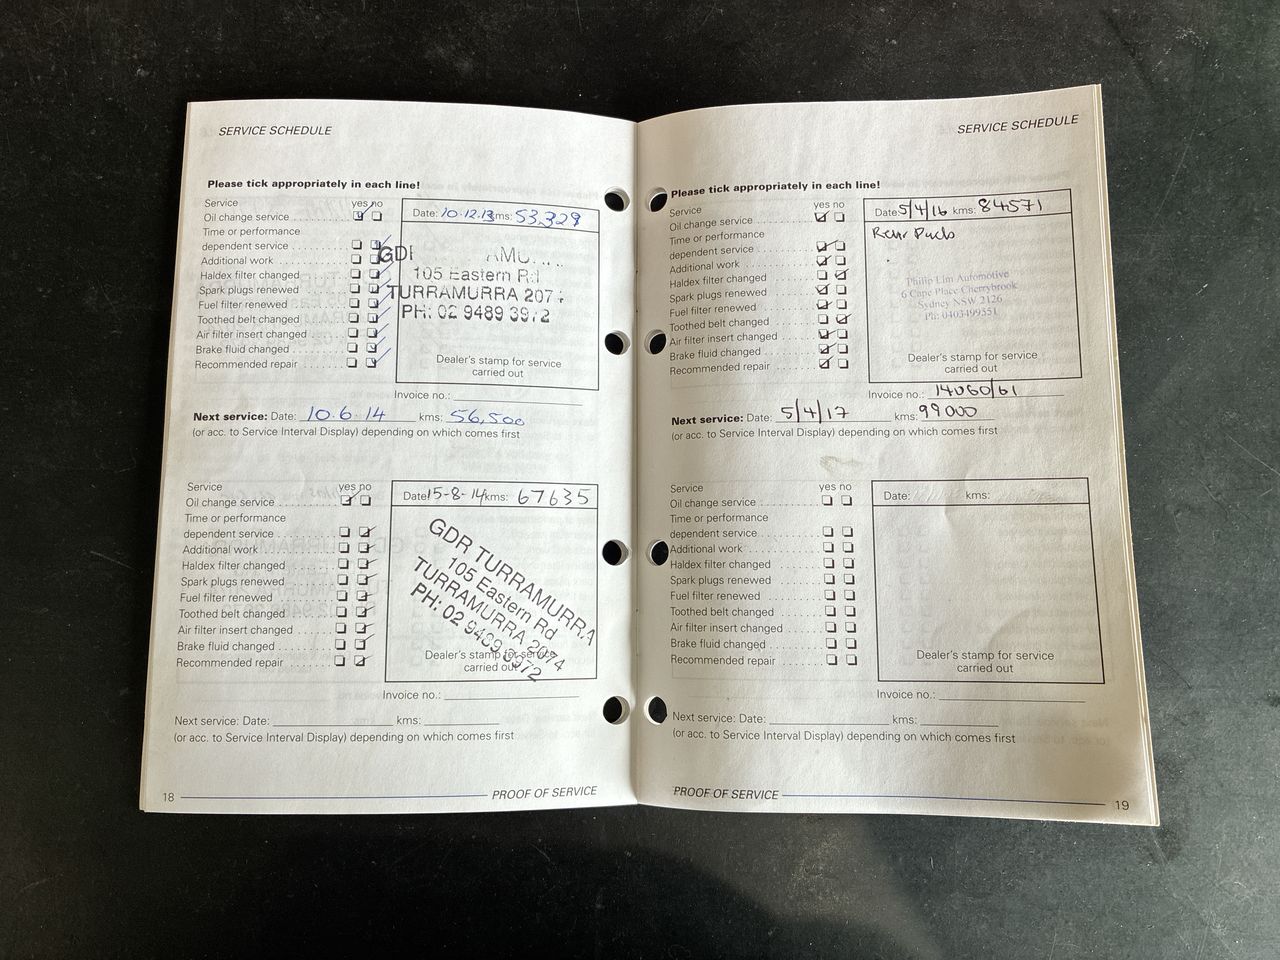 SERVICE SCHEDULE
Please tick appropriately in each line!
Service yes no
Oil change service
Time or performance
dependent service
Additional work
Haldex filter changed
Spark plugs renewed
Fuel filter renewed
Toothed belt changed
Air filter insert changed
Brake fluid changed
Recommended repair
Date: 10.12.13 kms: 53,329
105 Eastern Rd
TURRAMURRA 207
PH: 02 9489 3972
Dealer's stamp for service
carried out
Invoice no.:
Next service: Date: 10.6.14 kms: 56,500
(or acc. to Service Interval Display) depending on which comes first
Service yes no
Oil change service
Time or performance
dependent service
Additional work
Haldex filter changed
Spark plugs renewed
Fuel filter renewed
Toothed belt changed
Air filter insert changed
Brake fluid changed
Recommended repair
Date: 15-8-14 kms: 67635
GDR TURRAMURRA
105 Eastern Rd
TURRAMURRA 2074
PH: 02 9489 3972
Dealer's stamp for service
carried out
Invoice no.:
Next service: Date: kms:
(or acc. to Service Interval Display) depending on which comes first
18 PROOF OF SERVICE
SERVICE SCHEDULE
Please tick appropriately in each line!
Service yes no
Oil change service
Time or performance
dependent service
Additional work
Haldex filter changed
Spark plugs renewed
Fuel filter renewed
Toothed belt changed
Air filter insert changed
Brake fluid changed
Recommended repair
Date: 5/4/16 kms: 84571
Rear
Philip Lim Automotive
6 Cape Place Cherrybrook
Sydney NSW 2126
Ph: 0403499551
Dealer's stamp for service
carried out
Invoice no.: 14060/61
Next service: Date: 5/4/17 kms: 99000
(or acc. to Service Interval Display) depending on which comes first
Service yes no
Oil change service
Time or performance
dependent service
Additional work
Haldex filter changed
Spark plugs renewed
Fuel filter renewed
Toothed belt changed
Air filter insert changed
Brake fluid changed
Recommended repair
Date: kms:
Dealer's stamp for service
carried out
Invoice no.:
Next service: Date: kms:
(or acc. to Service Interval Display) depending on which comes first
PROOF OF SERVICE 19